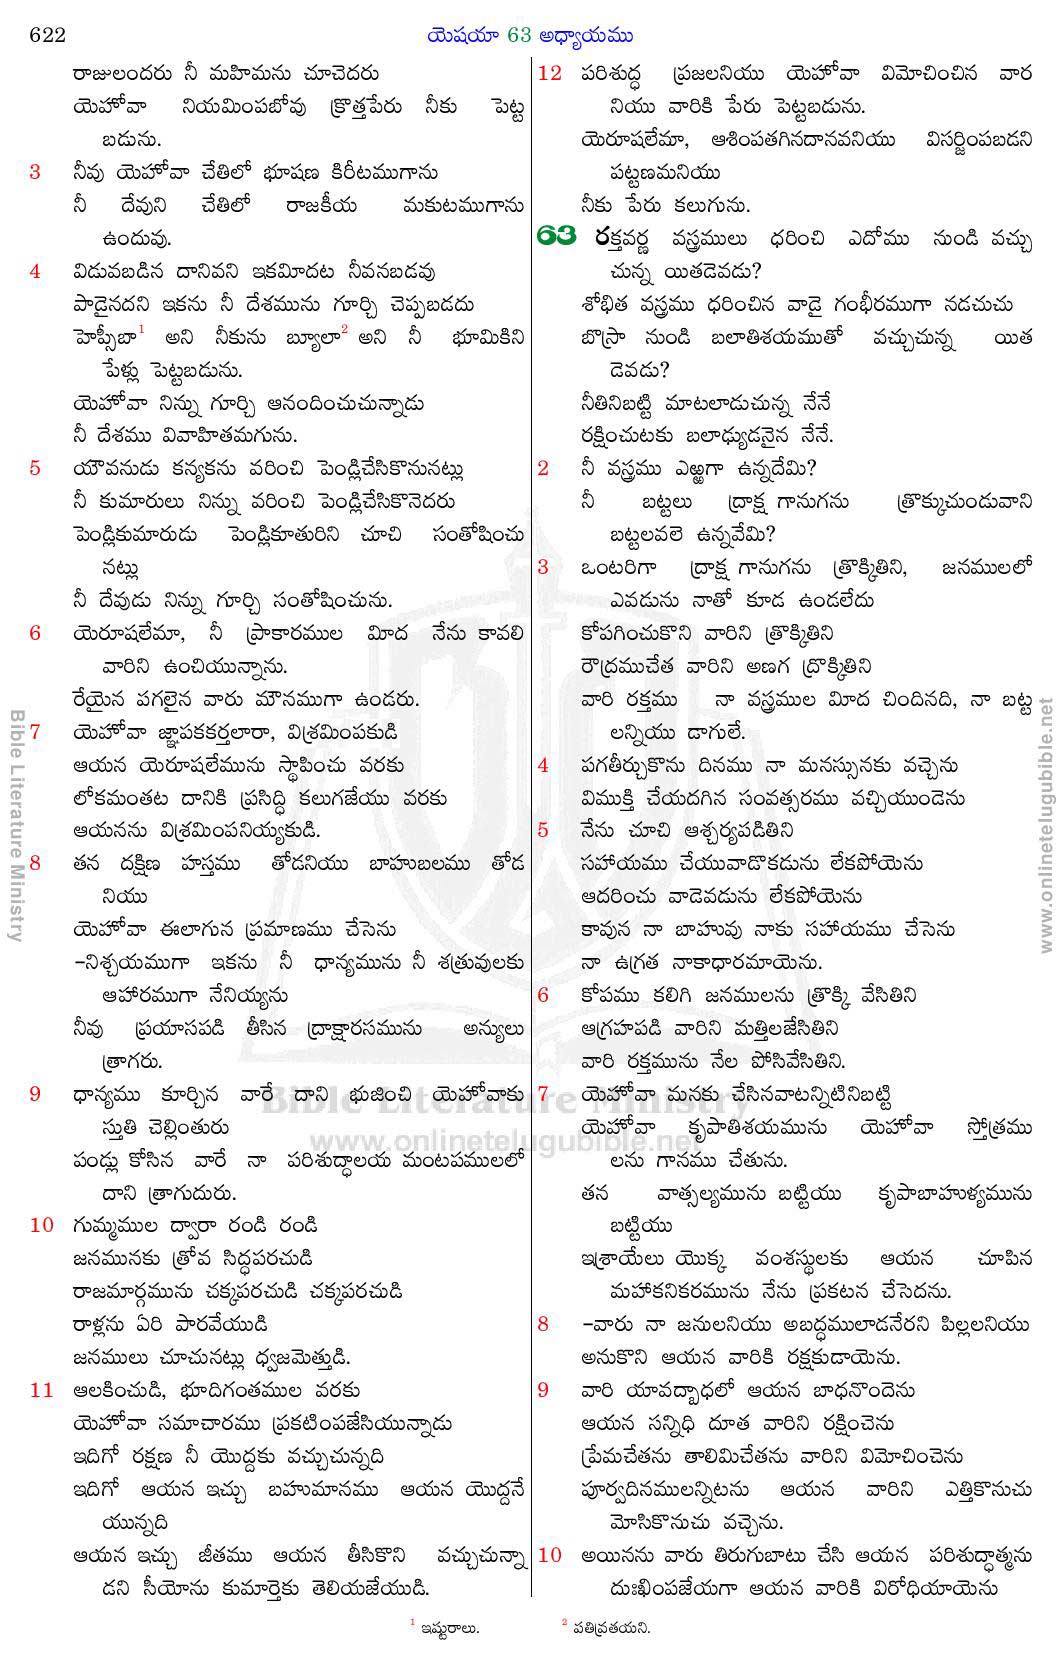 622
యెషయా 63 అధ్యాయము
రాజులందరు నీ మహిమను చూచెదరు
యెహోవా నియమింపబోవు క్రొత్తపేరు నీకు పెట్ట
బడును.
3 నీవు యెహోవా చేతిలో భూషణ కిరీటముగాను
నీ దేవుని చేతిలో రాజకీయ మకుటముగాను
ఉందువు.
4 విడువబడిన దానివని ఇకమీదట నీవనబడవు
పాడైనదని ఇకను నీ దేశమును గూర్చి చెప్పబడదు
హెప్సీబా1 అని నీకును బ్యూలా2 అని నీ భూమికిని
పేళ్లు పెట్టబడును.
యెహోవా నిన్ను గూర్చి ఆనందించుచున్నాడు
నీ దేశము వివాహితమగును.
5 యౌవనుడు కన్యకను వరించి పెండ్లిచేసికొనునట్లు
నీ కుమారులు నిన్ను వరించి పెండ్లిచేసికొనెదరు
పెండ్లికుమారుడు పెండ్లికూతురిని చూచి సంతోషించు
నట్లు
నీ దేవుడు నిన్ను గూర్చి సంతోషించును.
6 యెరూషలేమా, నీ ప్రాకారముల మీద నేను కావలి
వారిని ఉంచియున్నాను.
రేయైన పగలైన వారు మౌనముగా ఉండరు.
7 యెహోవా జ్ఞాపకకర్తలారా, విశ్రమింపకుడి
ఆయన యెరూషలేమును స్థాపించు వరకు
లోకమంతట దానికి ప్రసిద్ధి కలుగజేయు వరకు
ఆయనను విశ్రమింపనియ్యకుడి.
8 తన దక్షిణ హస్తము తోడనియు బాహుబలము తోడ
నియు
యెహోవా ఈలాగున ప్రమాణము చేసెను
-నిశ్చయముగా ఇకను నీ ధాన్యమును నీ శత్రువులకు
ఆహారముగా నేనియ్యను
నీవు ప్రయాసపడి తీసిన ద్రాక్షారసమును అన్యులు
త్రాగరు.
9 ధాన్యము కూర్చిన వారే దాని భుజించి యెహోవాకు
స్తుతి చెల్లింతురు
పండ్లు కోసిన వారే నా పరిశుద్ధాలయ మంటపములలో
దాని త్రాగుదురు.
10 గుమ్మముల ద్వారా రండి రండి
జనమునకు త్రోవ సిద్ధపరచుడి
రాజమార్గమును చక్కపరచుడి చక్కపరచుడి
రాళ్లను ఏరి పారవేయుడి
జనములు చూచునట్లు ధ్వజమెత్తుడి.
11 ఆలకించుడి, భూదిగంతముల వరకు
యెహోవా సమాచారము ప్రకటింపజేసియున్నాడు
ఇదిగో రక్షణ నీ యొద్దకు వచ్చుచున్నది
ఇదిగో ఆయన ఇచ్చు బహుమానము ఆయన యొద్దనే
యున్నది
ఆయన ఇచ్చు జీతము ఆయన తీసికొని వచ్చుచున్నా
డని సీయోను కుమార్తెకు తెలియజేయుడి.
12 పరిశుద్ధ ప్రజలనియు యెహోవా విమోచించిన వార
నియు వారికి పేరు పెట్టబడును.
యెరూషలేమా, ఆశింపతగినదానవనియు విసర్జింపబడని
పట్టణమనియు
నీకు పేరు కలుగును.
63 రక్తవర్ణ వస్త్రములు ధరించి ఎదోము నుండి వచ్చు
చున్న యితడెవడు?
శోభిత వస్త్రము ధరించిన వాడై గంభీరముగా నడచుచు
బొస్రా నుండి బలాతిశయముతో వచ్చుచున్న యిత
డెవడు?
నీతినిబట్టి మాటలాడుచున్న నేనే
రక్షించుటకు బలాఢ్యుడనైన నేనే.
2 నీ వస్త్రము ఎఱ్ఱగా ఉన్నదేమి?
నీ బట్టలు ద్రాక్ష గానుగను త్రొక్కుచుండువాని
బట్టలవలె ఉన్నవేమి?
3 ఒంటరిగా ద్రాక్ష గానుగను త్రొక్కితిని, జనములలో
ఎవడును నాతో కూడ ఉండలేదు
కోపగించుకొని వారిని త్రొక్కితిని
రౌద్రముచేత వారిని అణగ ద్రొక్కితిని
వారి రక్తము నా వస్త్రముల మీద చిందినది, నా బట్ట
లన్నియు డాగులే.
4 పగతీర్చుకొను దినము నా మనస్సునకు వచ్చెను
విముక్తి చేయదగిన సంవత్సరము వచ్చియుండెను
5 నేను చూచి ఆశ్చర్యపడితిని
సహాయము చేయువాడొకడును లేకపోయెను
ఆదరించు వాడెవడును లేకపోయెను
కావున నా బాహువు నాకు సహాయము చేసెను
నా ఉగ్రత నాకాధారమాయెను.
6 కోపము కలిగి జనములను త్రొక్కి వేసితిని
ఆగ్రహపడి వారిని మత్తిలజేసితిని
వారి రక్తమును నేల పోసివేసితిని.
7 యెహోవా మనకు చేసినవాటన్నిటినిబట్టి
యెహోవా కృపాతిశయమును యెహోవా స్తోత్రము
లను గానము చేతును.
తన వాత్సల్యమును బట్టియు కృపాబాహుళ్యమును
బట్టియు
ఇశ్రాయేలు యొక్క వంశస్థులకు ఆయన చూపిన
మహాకనికరమును నేను ప్రకటన చేసెదను.
8 -వారు నా జనులనియు అబద్ధములాడనేరని పిల్లలనియు
అనుకొని ఆయన వారికి రక్షకుడాయెను.
9 వారి యావద్బాధలో ఆయన బాధనొందెను
ఆయన సన్నిధి దూత వారిని రక్షించెను
ప్రేమచేతను తాలిమిచేతను వారిని విమోచించెను
పూర్వదినములన్నిటను ఆయన వారిని ఎత్తికొనుచు
మోసికొనుచు వచ్చెను.
10 అయినను వారు తిరుగుబాటు చేసి ఆయన పరిశుద్ధాత్మను
దుఃఖింపజేయగా ఆయన వారికి విరోధియాయెను
1 ఇష్టురాలు.
2 పతివ్రతయని.
Bible Literature Ministry
www.onlinetelugubible.net
Bible Literature Ministry
www.onlinetelugubible.net